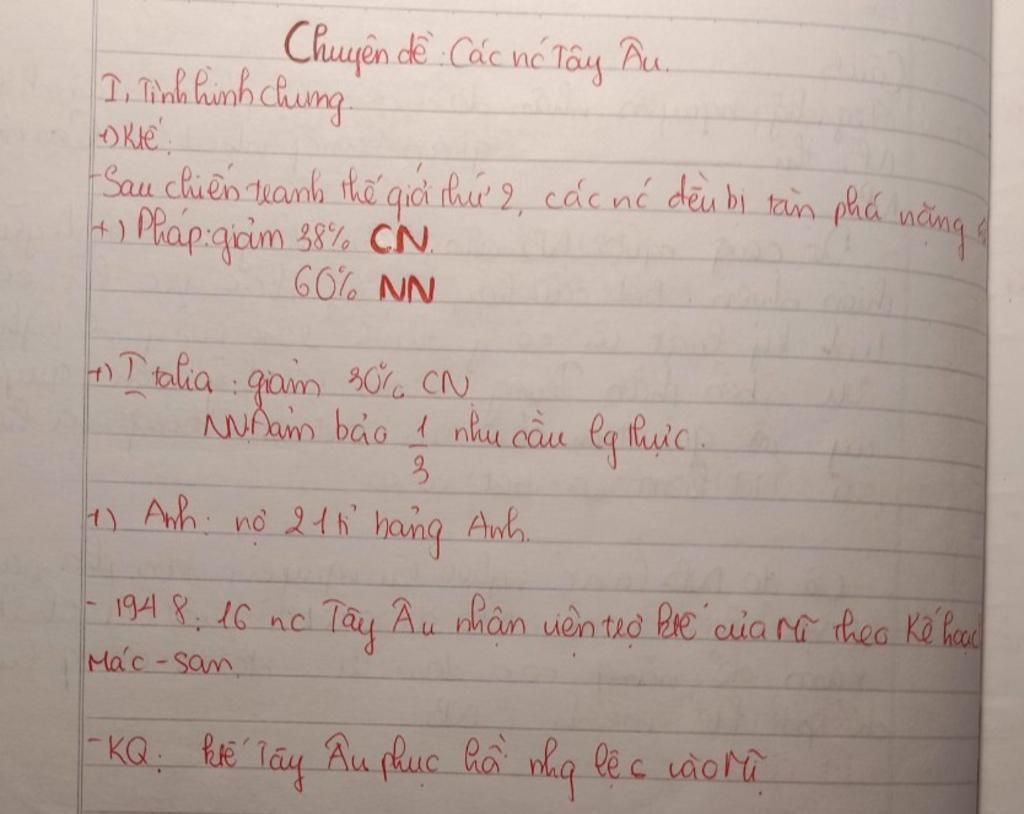 Chuyên đề: Các nc Tây Âu.
I, Tình hình chung.
+) Ktế:
- Sau chiến tranh thế giới thứ 2, các nc đều bị tàn phá nặng
+) Pháp: giảm 38% CN.
60% NN
+) Italia: giảm 30% CN
NN Đảm bảo 1/3 nhu cầu lg thực.
+) Anh: nợ 21 tỉ bảng Anh.
- 1948: 16 nc Tây Âu nhận viện trợ ktế của Mĩ theo Kế hoạc
Mác-san.
- KQ: ktế Tây Âu phục hồi nhg lệ c vào Mĩ